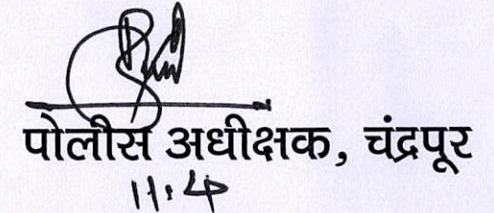 पोलीस अधीक्षक, चंद्रपूर